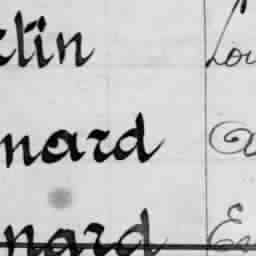 tin Lou
nard a
nard En